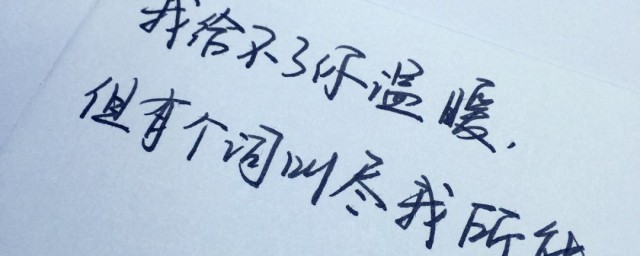 我给不了你温暖.
但有个词叫尽我所能